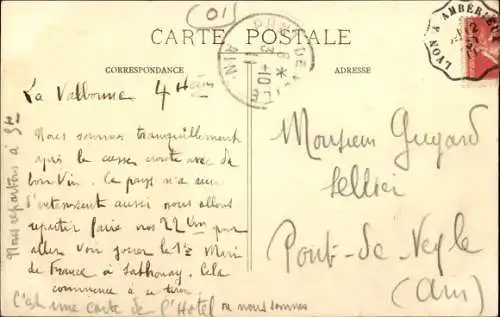 (01)
CARTE POSTALE
CORRESPONDANCE
ADRESSE
PONT-DE-VEYLE
AIN
LYON A AMBERIEU
La Valbonne 4 H
Nous sommes tranquillement
après le casse croute avec du
bon Vin. Ce pays n'a rien
d'interessant aussi nous allons
repartir faire nos 22 Km pour
aller Voir jouer le 1er Mari
de France à Sathonay. Cela
commence à se tirer.
C'est une carte de l'Hotel ou nous sommes
Nous repartons à 5h
Monsieur Guyard
Sellier
Pont-de-Veyle
(Ain)